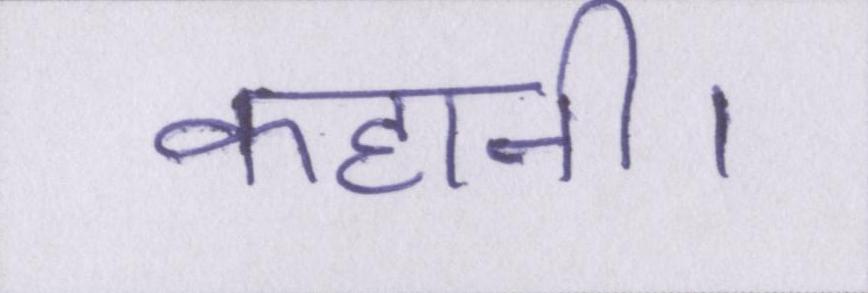 कहानी।